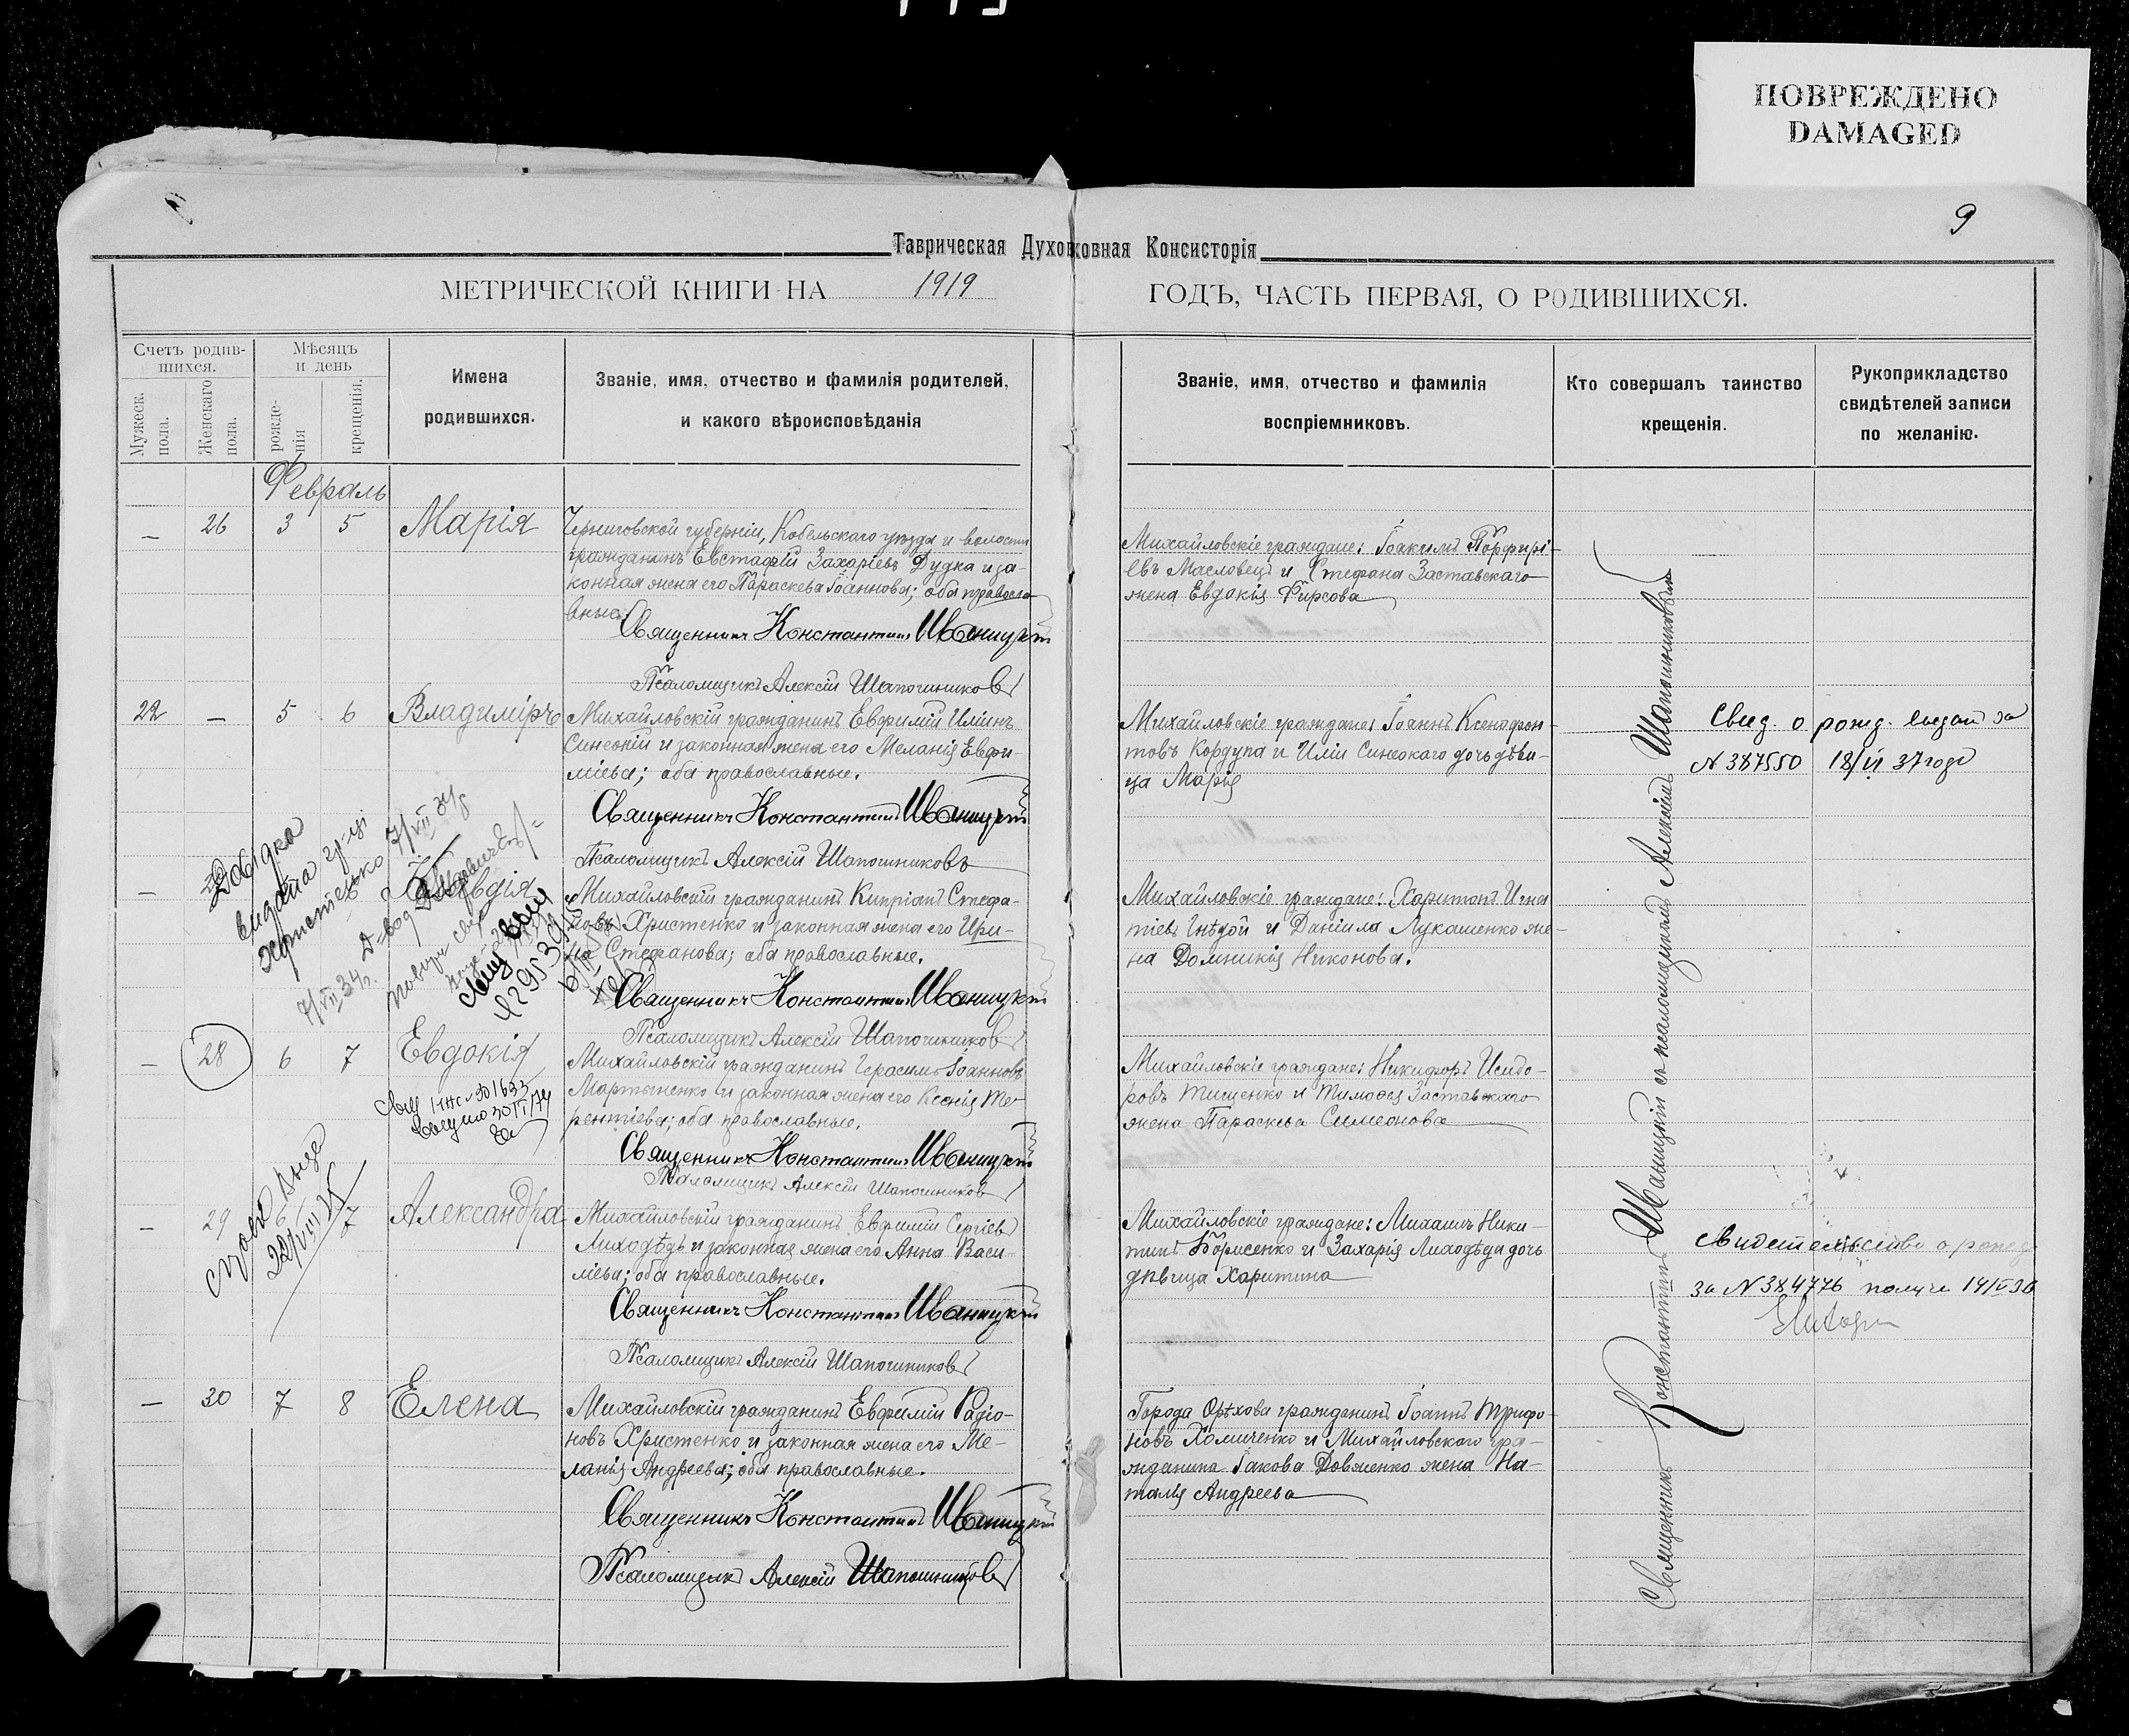 ПОВРЕЖДЕНО
DAMAGED
9
Таврическая Духовная Консисторія
МЕТРИЧЕСКОЙ КНИГИ НА 1919 ГОДЪ, ЧАСТЬ ПЕРВАЯ, О РОДИВШИХСЯ.
Счетъ родив-
шихся.
Мужеск.
пола.
Женскаго
пола.
Мѣсяцъ
и день
рожде-
нія
крещенія.
Имена
родившихся.
Званіе, имя, отчество и фамилія родителей,
и какого вѣроисповѣданія
Званіе, имя, отчество и фамилія
воспріемниковъ.
Кто совершалъ таинство
крещенія.
Рукоприкладство
свидѣтелей записи
по желанію.
Февраль
— 26 3 5 Марія
Черниговской губерніи, Кобельскаго уѣзда и волости
гражданинъ Евстафій Захаріевъ Дудка и за-
конная жена его Параскева Іоаннова; оба правосла-
вные.
Священникъ Константинъ Иваницкій
Псаломщикъ Алексій Шапошниковъ
Михайловскіе граждане: Іоакимъ Порфирі-
евъ Масловецъ и Стефана Заставскаго
жена Евдокія Фирсова
22 — 5 6 Владиміръ
Михайловскій гражданинъ Евфимій Иліинъ
Синеокій и законная жена его Меланія Евфи-
міева; оба православные.
Священникъ Константинъ Иваницкій
Псаломщикъ Алексій Шапошниковъ
Михайловскіе граждане: Іоаннъ Ксенофон-
товъ Кордупа и Иліи Синеокаго дочь дѣви-
ца Марія
Свид. о рожд. выдан за
№ 387550 18/VI 37 года
—
Довідка
видана гр-ці
Христенко 7/VII 34
7/VII 34 р.
Михайловскій гражданинъ Кипріанъ Стефа-
новъ Христенко и законная жена его Ири-
на Стефанова; оба православные.
Священникъ Константинъ Иваницкій
Псаломщикъ Алексій Шапошниковъ
Михайловскіе граждане: Харитонъ Игна-
тіевъ Гнѣдой и Даніила Лукашенко же-
на Домникія Никонова.
— 28 6 7 Евдокія
Михайловскій гражданинъ Герасимъ Іоанновъ
Мартыненко и законная жена его Ксенія Те-
рентіева; оба православные.
Священникъ Константинъ Иваницкій
Псаломщикъ Алексій Шапошниковъ
Михайловскіе граждане: Никифоръ Исидо-
ровъ Тищенко и Тимофея Заставскаго
жена Параскева Симеонова
— 29 6 7 Александра
Михайловскій гражданинъ Евфимій Сергіевъ
Лиходѣдъ и законная жена его Анна Васи-
ліева; оба православные.
Священникъ Константинъ Иваницкій
Псаломщикъ Алексій Шапошниковъ
Михайловскіе граждане: Михаилъ Ники-
тинъ Борисенко и Захарія Лиходѣда дочь
дѣвица Харитина
Свидетельство о рожд
за № 384776 получ 14/VI 36
— 30 7 8 Елена
Михайловскій гражданинъ Евфимій Радіо-
новъ Христенко и законная жена его Ме-
ланія Андреева; оба православные.
Священникъ Константинъ Иваницкій
Псаломщикъ Алексій Шапошниковъ
Города Орѣхова гражданинъ Іоаннъ Трифо-
новъ Хомиченко и Михайловскаго гра-
жданина Іакова Довженко жена На-
талія Андреева
Священникъ Константинъ Иваницкій съ псаломщикомъ Алексіемъ Шапошниковымъ